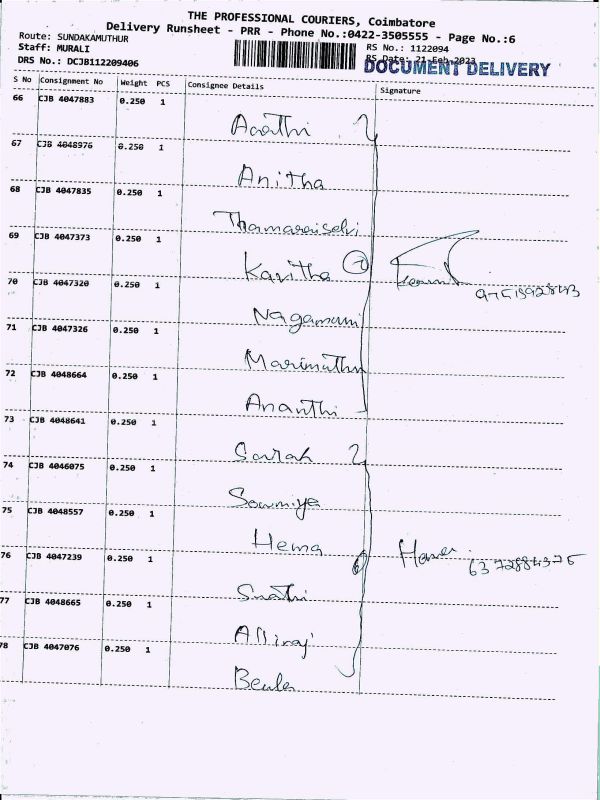 THE PROFESSIONAL COURIERS, Coimbatore
Delivery Runsheet - PRR - Phone No.:0422-3505555 - Page No.:6
Route: SUNDAKAMUTHUR
Staff: MURALI
RS No.: 1122094
RS Date: 21-Feb-2023
DRS No.: DCJB112209406
DOCUMENT DELIVERY
S No Consignment No Weight PCS Consignee Details Signature
66 CJB 4047883 0.250 1
Aarthi
67 CJB 4048976 0.250 1
Anitha
68 CJB 4047835 0.250 1
Thamaraiselvi
69 CJB 4047373 0.250 1
Kavitha 7
70 CJB 4047320 0.250 1
Nagamani
71 CJB 4047326 0.250 1
Marimuthu
72 CJB 4048664 0.250 1
Ananthi
73 CJB 4048641 0.250 1
Sarah
74 CJB 4046075 0.250 1
Sowmiya
75 CJB 4048557 0.250 1
Hema
6372884375
76 CJB 4047239 0.250 1
Swathi
77 CJB 4048665 0.250 1
Alliraj
78 CJB 4047076 0.250 1
Beula